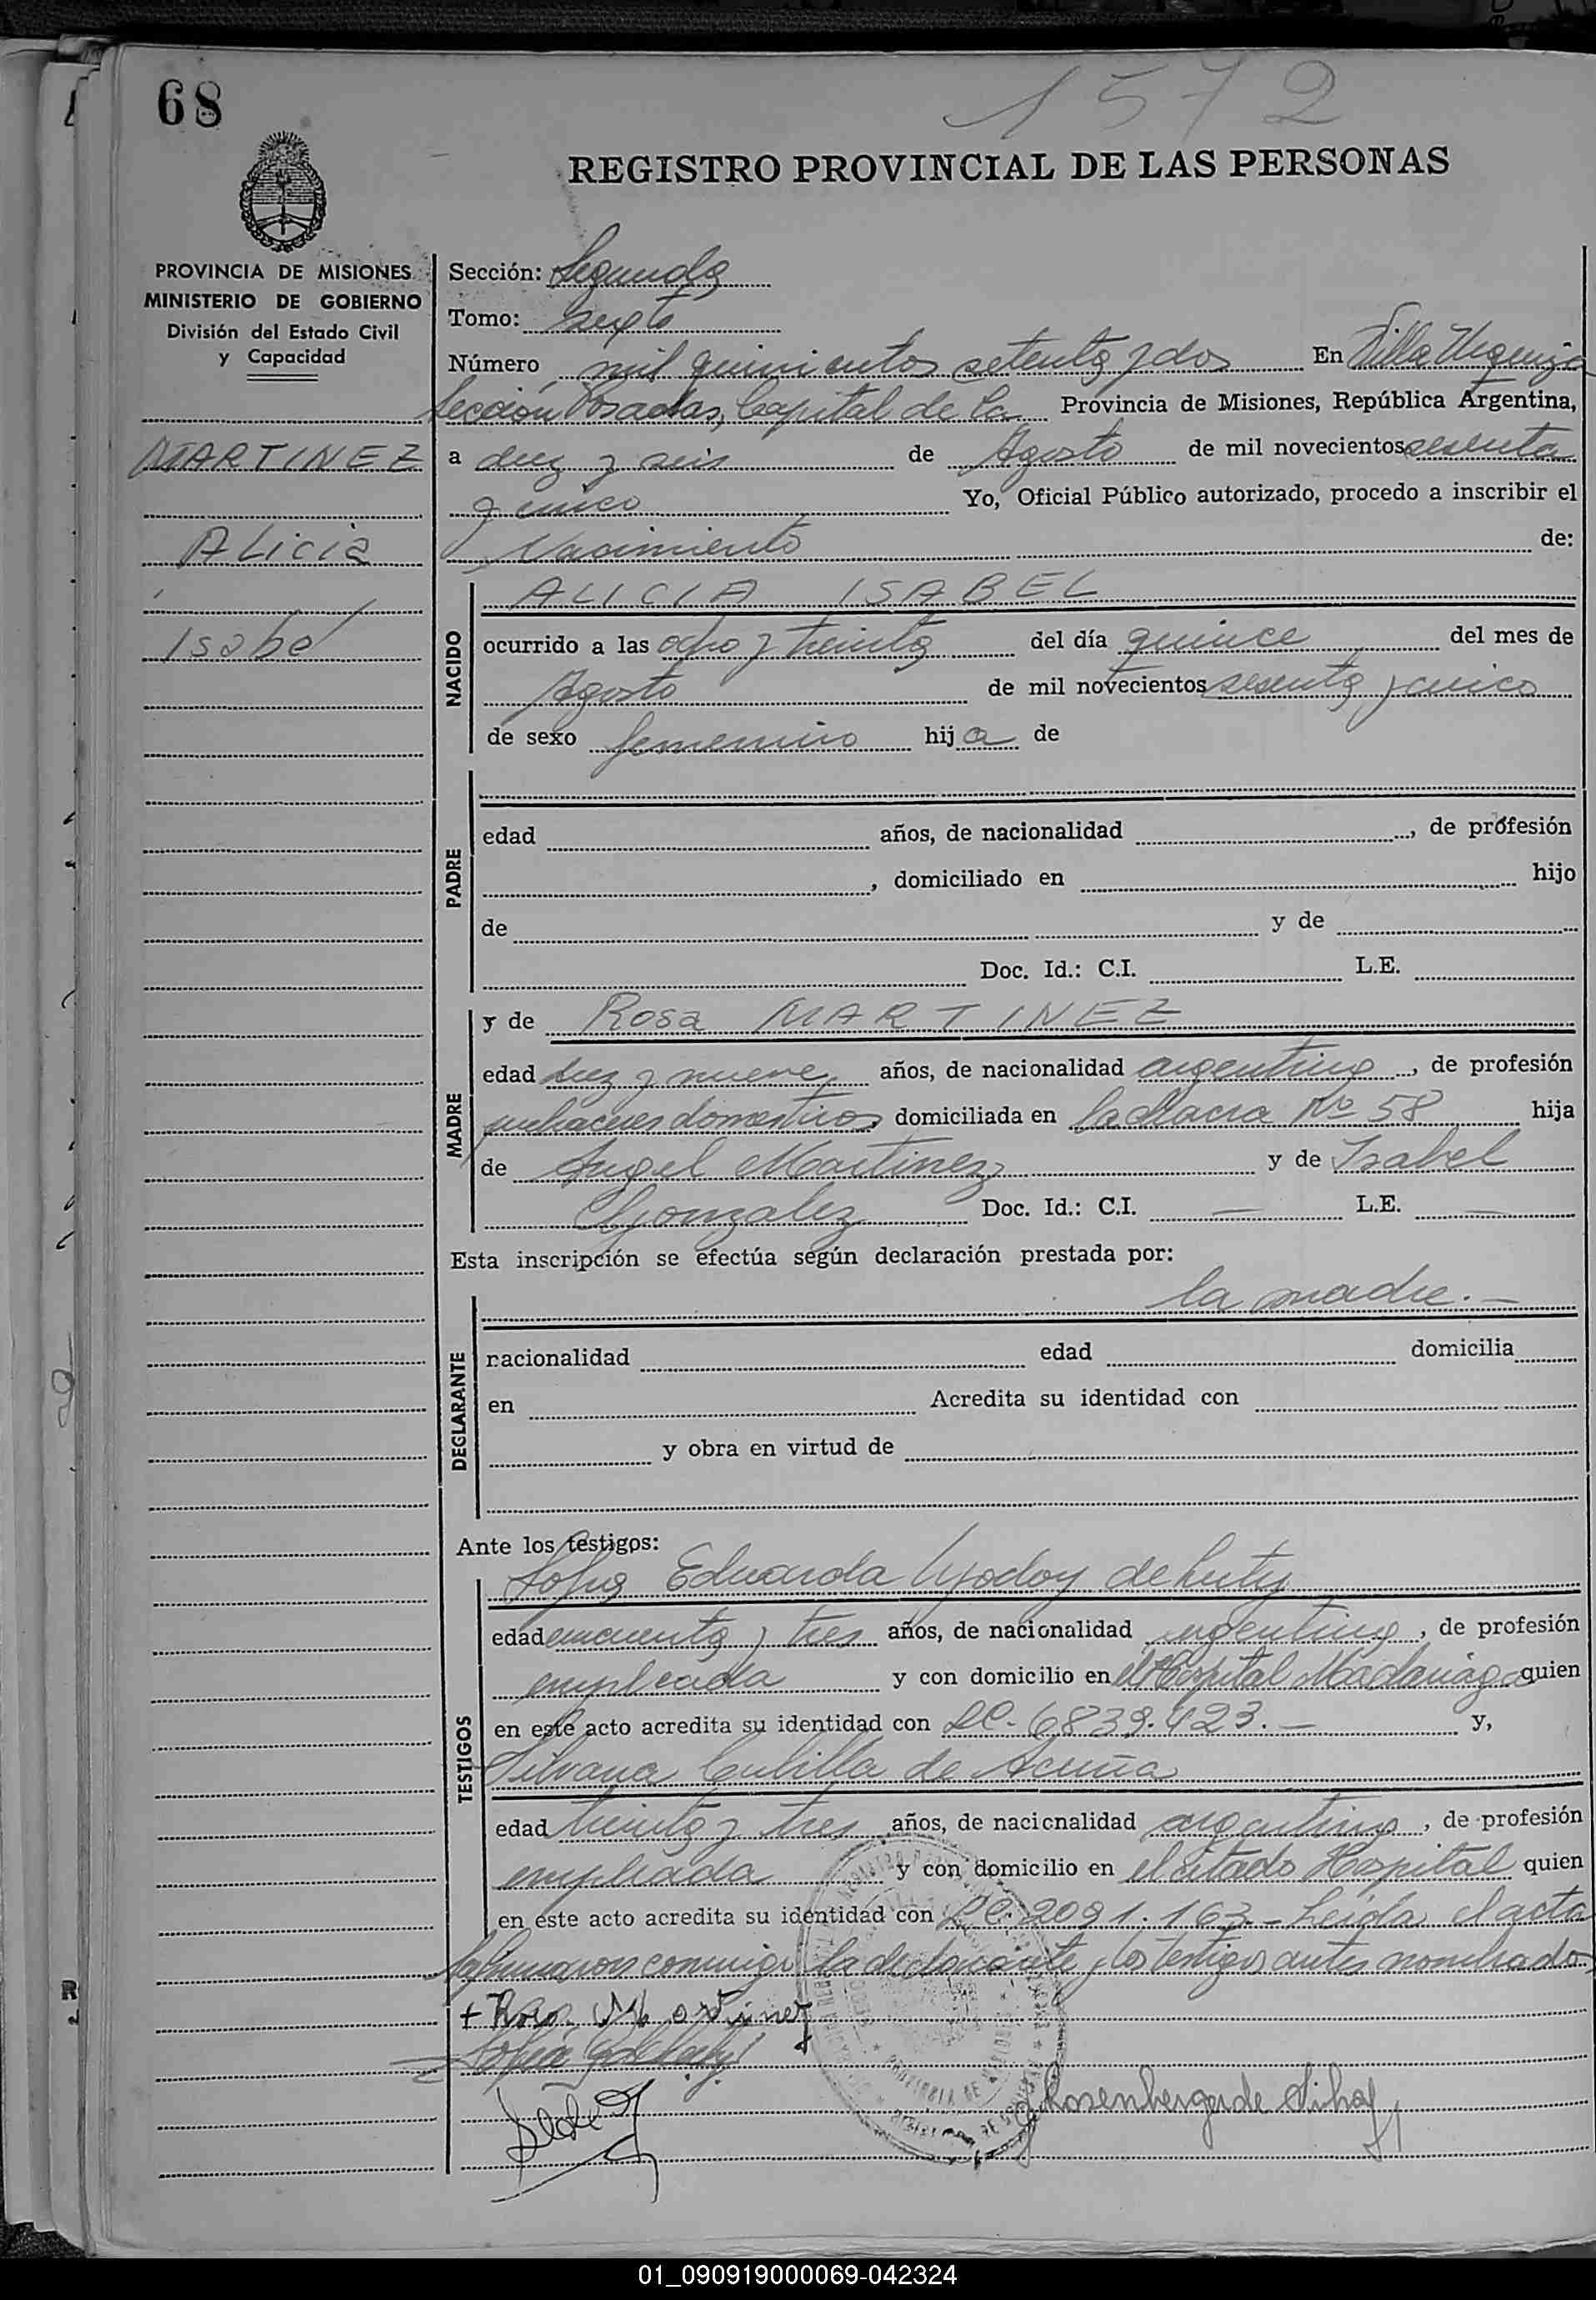 68
1572
REGISTRO PROVINCIAL DE LAS PERSONAS
PROVINCIA DE MISIONES
MINISTERIO DE GOBIERNO
División del Estado Civil
y Capacidad
MARTINEZ
Alicia
Isabel
Sección: Segunda
Tomo: sexto
Número mil quinientos setenta y dos En Villa Urquiza
Sección Posadas, Capital de la Provincia de Misiones, República Argentina,
a diez y seis de Agosto de mil novecientos sesenta
y cinco Yo, Oficial Público autorizado, procedo a inscribir el
Nacimiento de:
NACIDO
ALICIA ISABEL
ocurrido a las ocho y treinta del día quince del mes de
Agosto de mil novecientos sesenta y cinco
de sexo femenino hija de
PADRE
edad años, de nacionalidad , de profesión
, domiciliado en hijo
de y de
Doc. Id.: C.I. L.E.
MADRE
y de Rosa MARTINEZ
edad diez y nueve años, de nacionalidad argentina, de profesión
quehaceres domesticos, domiciliada en la chacra Nº 58 hija
de Angel Martinez y de Isabel
Gonzalez Doc. Id.: C.I. — L.E. —
Esta inscripción se efectúa según declaración prestada por:
la madre.—
DECLARANTE
nacionalidad edad domicilia
en Acredita su identidad con
y obra en virtud de
Ante los testigos:
TESTIGOS
Sofia Eduarda Godoy de
edad cincuenta y tres años, de nacionalidad argentina, de profesión
empleada y con domicilio en el Hospital Madariaga quien
en este acto acredita su identidad con LC. 6839.423.— y,
Silvana Cubilla de Acuña
edad treinta y tres años, de nacionalidad argentina, de profesión
empleada y con domicilio en el citado Hospital quien
en este acto acredita su identidad con LC. 2091.163.- Leida el acta
la firmaron conmigo la declarante y los testigos antes nombrados
+ Rosa Martinez
Rosenberger de
01_090919000069-042324